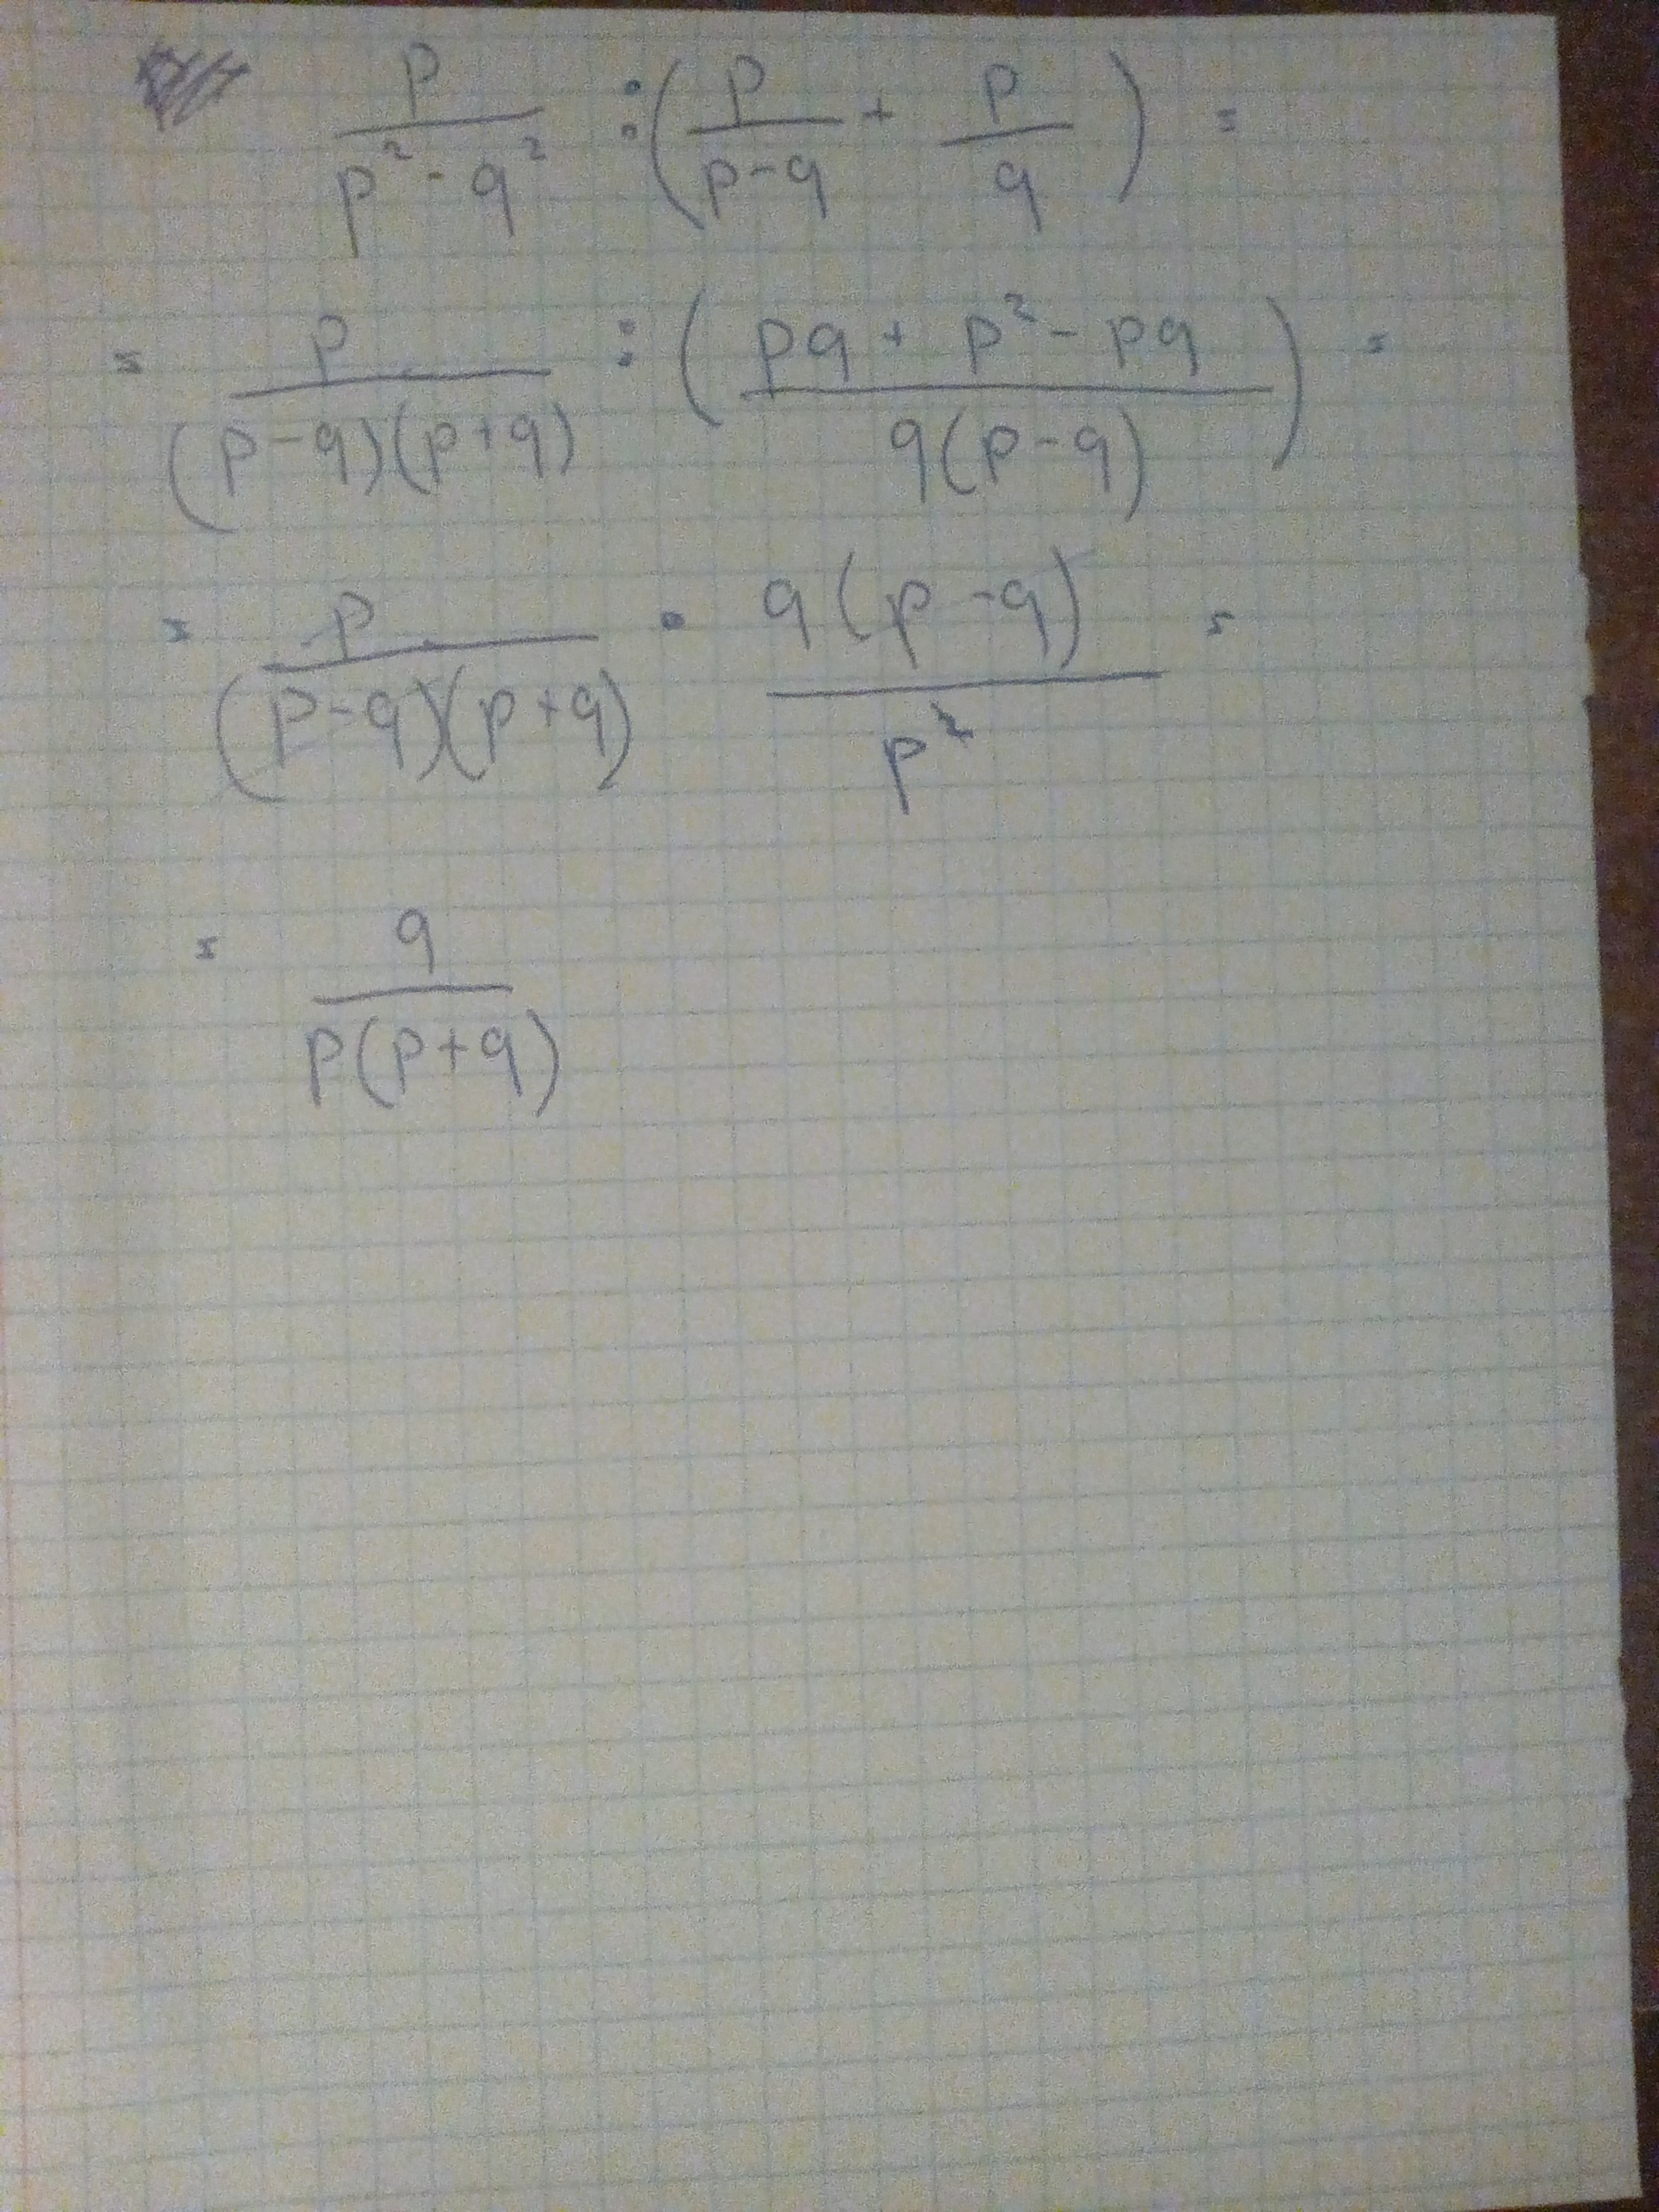 p/(p²-q²) : (p/(p-q) + p/q) =
= p/((p-q)(p+q)) : ((pq + p² - pq)/(q(p-q))) =
= p/((p-q)(p+q)) · q(p-q)/p² =
= q/(p(p+q))